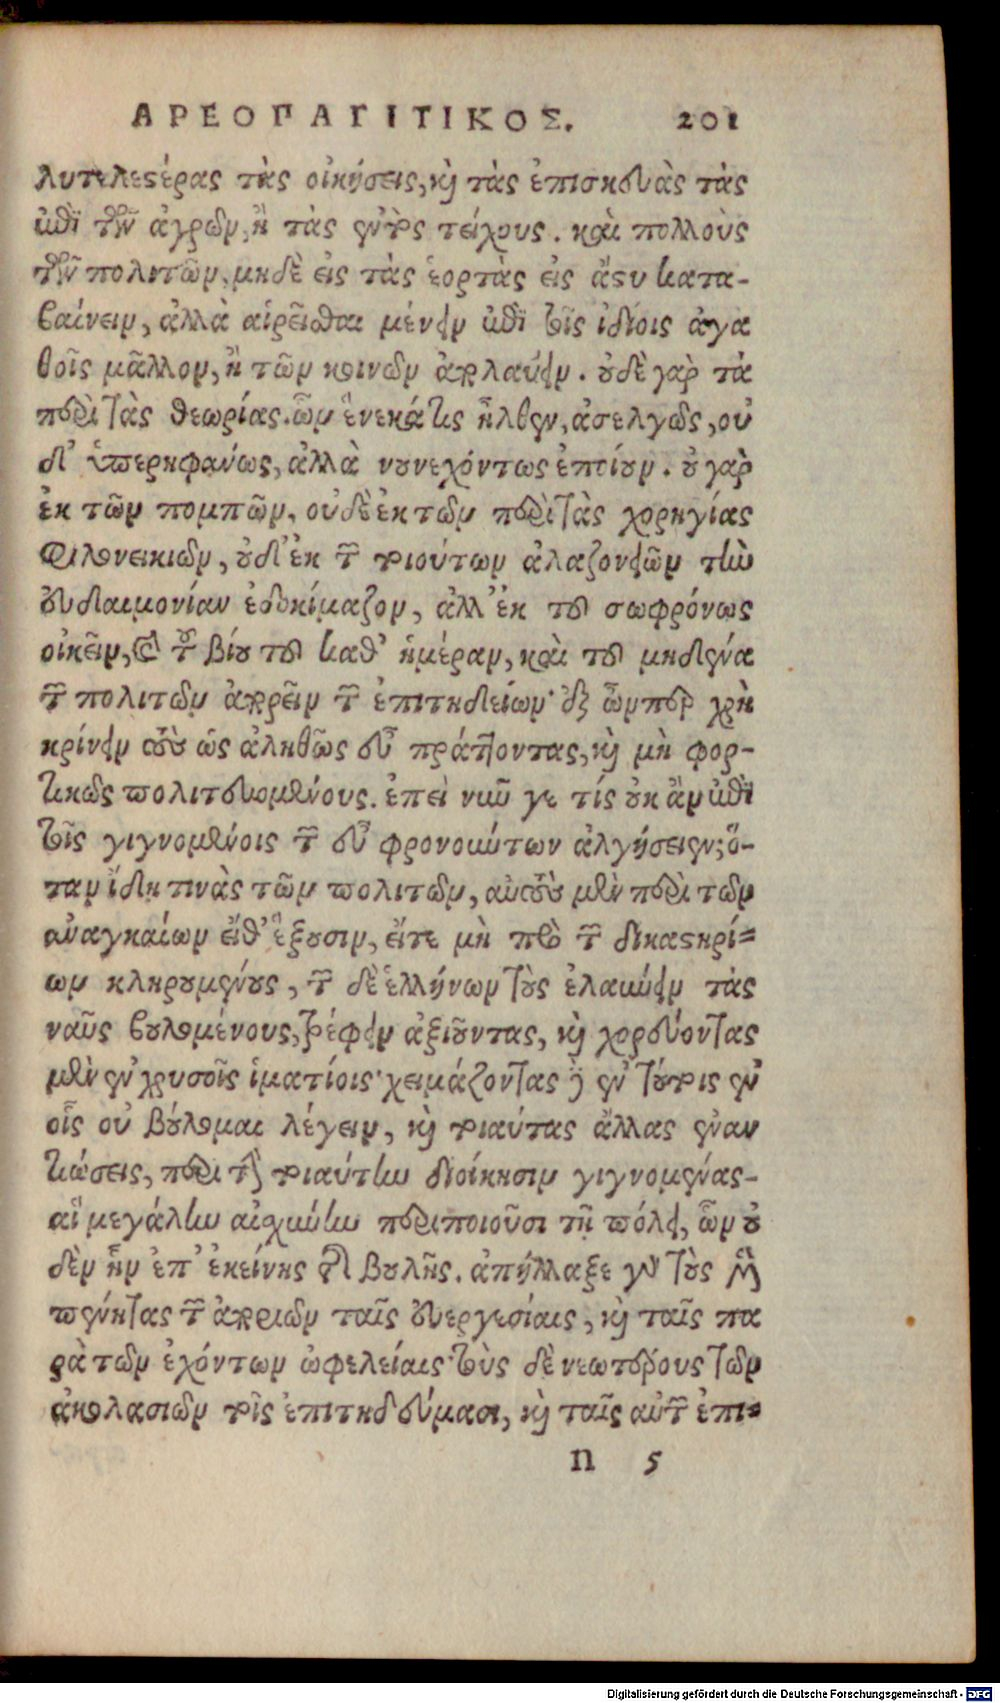 ΑΡΕΟΠΑΓΙΤΙΚΟΣ. 201
λυτελεστέρας τὰς οἰκήσεις, καὶ τὰς ἐπισκευὰς τὰς
ἐπὶ τῶν ἀγρῶν, ἢ τὰς ἐντὸς τείχους. καὶ πολλοὺς
τῶν πολιτῶν, μηδὲ εἰς τὰς ἑορτὰς εἰς ἄστυ κατα-
βαίνειν, ἀλλὰ αἱρεῖσθαι μένειν ἐπὶ τοῖς ἰδίοις ἀγα
θοῖς μᾶλλον, ἢ τῶν κοινῶν ἀπολαύειν. οὐδὲ γὰρ τὰ
περὶ τὰς θεωρίας. ὧν ἕνεκά τις ἦλθεν, ἀσελγῶς, οὐ
δ' ὑπερηφάνως, ἀλλὰ νουνεχόντως ἐποίουν. οὐ γὰρ
ἐκ τῶν πομπῶν, οὐδὲ ἐκ τῶν περὶ τὰς χορηγίας
φιλονεικιῶν, οὐδ' ἐκ τῶν τοιούτων ἀλαζονειῶν τὴν
εὐδαιμονίαν ἐδοκίμαζον, ἀλλ' ἐκ τοῦ σωφρόνως
οἰκεῖν, καὶ τοῦ βίου τοῦ καθ' ἡμέραν, καὶ τοῦ μηδένα
τῶν πολιτῶν ἀπορεῖν τῶν ἐπιτηδείων· ἐξ ὧνπερ χρὴ
κρίνειν τοὺς ὡς ἀληθῶς εὖ πράττοντας, καὶ μὴ φορ-
τικῶς πολιτευομένους. ἐπεὶ νῦν γε τίς οὐκ ἂν ἐπὶ
τοῖς γιγνομένοις τῶν εὖ φρονούντων ἀλγήσειεν; ὅ-
ταν ἴδῃ τινὰς τῶν πολιτῶν, αὐτοὺς μὲν περὶ τῶν
ἀναγκαίων εἴθ' ἕξουσιν, εἴτε μὴ πρὸ τῶν δικαστηρί-
ων κληρουμένους, τῶν δὲ ἑλλήνων τοὺς ἐλαύνειν τὰς
ναῦς βουλομένους, τρέφειν ἀξιοῦντας, καὶ χορεύοντας
μὲν ἐν χρυσοῖς ἱματίοις· χειμάζοντας δὲ ἐν τούτοις ἐν
οἷς οὐ βούλομαι λέγειν, καὶ τοιαύτας ἄλλας ἐναν
τιώσεις, περὶ τὴν τοιαύτην διοίκησιν γιγνομένας-
αἳ μεγάλην αἰσχύνην περιποιοῦσι τῇ πόλει, ὧν οὐ
δὲν ἦν ἐπ' ἐκείνης τῆς βουλῆς. ἀπήλλαξε γὰρ τοὺς μὲν
πένητας τῶν ἀποριῶν ταῖς εὐεργεσίαις, καὶ ταῖς πα
ρὰ τῶν ἐχόντων ὠφελείαις· τοὺς δὲ νεωτέρους τῶν
ἀκολασιῶν τοῖς ἐπιτηδεύμασι, καὶ ταῖς αὐτῶν ἐπι-
n 5
Digitalisierung gefördert durch die Deutsche Forschungsgemeinschaft - DFG